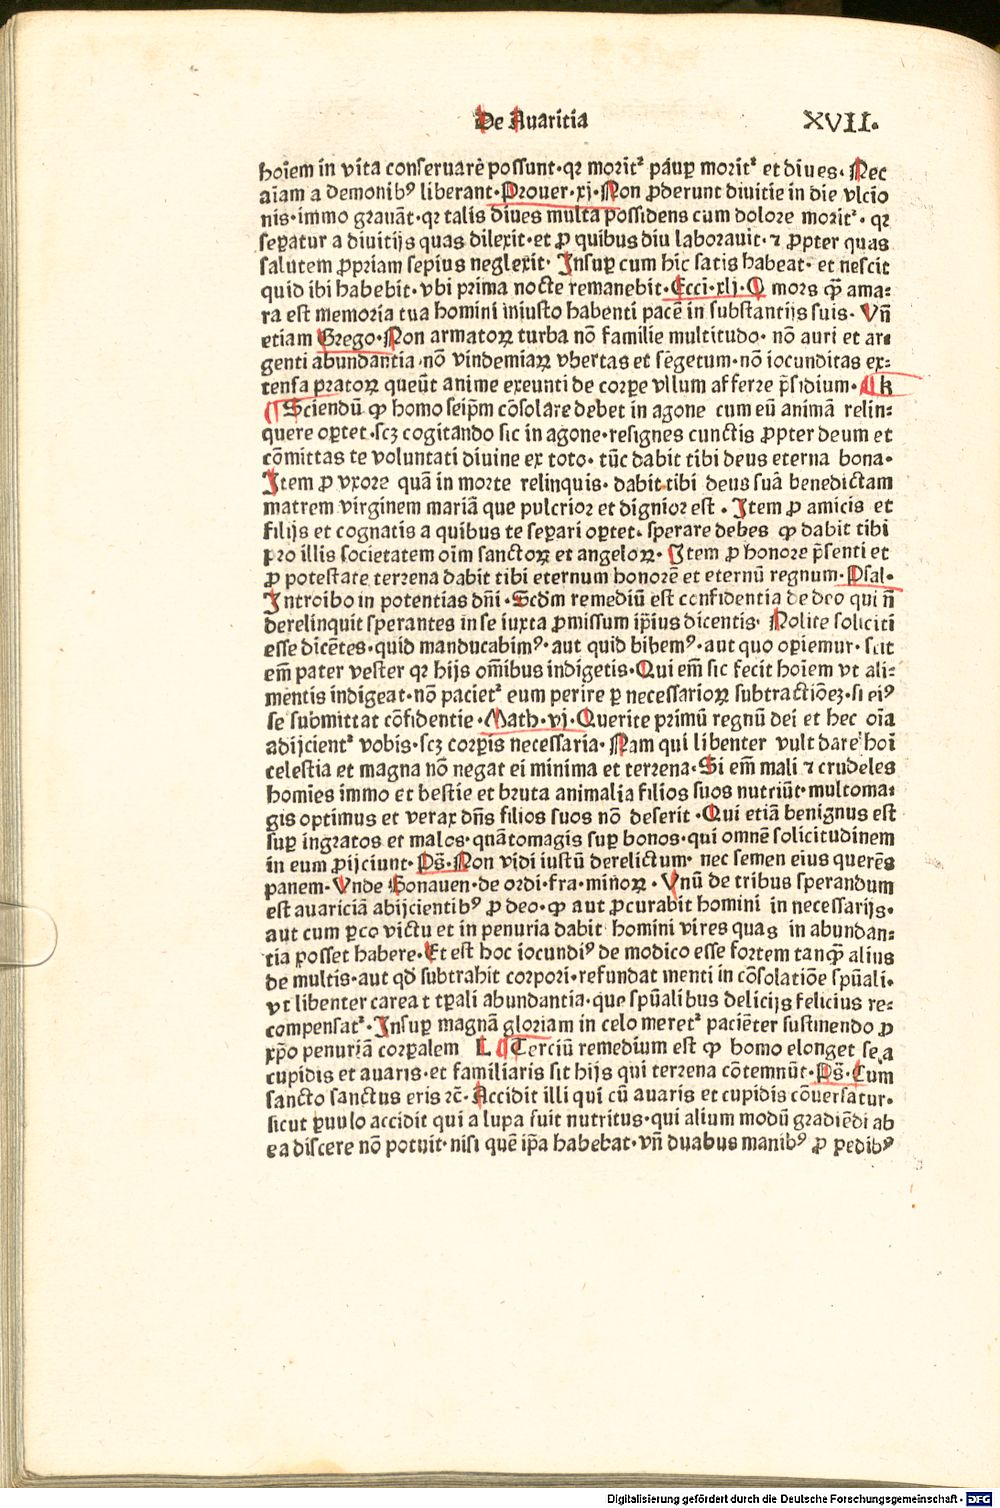 De Auaritia
XVII.
hoīem in vita conseruarē possunt·qꝛ moritᷣ paup̱ moritᷣ et diues·Nec
aīam a demonibꝰ liberant·Prouer·xj·Non ꝓderunt diuitie in die vlcio
nis·immo grauāt·qꝛ talis diues multa possidens cum dolore moritᷣ·qꝛ
sep̱atur a diuitijs quas dilexit·et ꝓ quibus diu laborauit·⁊ ꝓpter quas
salutem ꝓpriam sepius neglexit· Insup̱ cum hic satis habeat·et nescit
quid ibi habebit·vbi prima nocte remanebit·Ecci·xlj·O mors qꝫ̄ ama⸗
ra est memoria tua homini iniusto habenti pacē in substantijs suis· Vn̄
etiam Grego·Non armatoꝝ turba nō familie multitudo·nō auri et ar⸗
genti abundantia·nō vindemiaꝝ vbertas et sēgetum·nō iocunditas ex⸗
tensa pratoꝝ queūt anime exeunti de corpe vllum afferre p̄sidium·¶k
¶Sciendū ꝙ homo seip̄m cōsolare debet in agone cum eū animā relin⸗
quere op̱tet·scꝫ cogitando sic in agone·resignes cunctis ꝓpter deum et
cōmittas te voluntati diuine ex toto·tūc dabit tibi deus eterna bona·
Item ꝓ vxore quā in morte relinquis·dabit tibi deus suā benedictam
matrem virginem mariā que pulcrior et dignior est·Item ꝓ amicis et
filijs et cognatis a quibus te sep̱ari op̱tet·sperare debes ꝙ dabit tibi
pro illis societatem oīm sanctoꝝ et angeloꝝ·Item ꝓ honore p̄senti et
ꝓ potestate terrena dabit tibi eternum honorē et eternū regnum·Psal·
Introibo in potentias dn̄i·Scd̄m remediū est confidentia de deo qui n̄
derelinquit sperantes in se iuxta ꝓmissum ip̄ius dicentis· Nolite soliciti
esse dicētes·quid manducabimꝰ·aut quid bibemꝰ·aut quo op̱iemur·scit
em̄ pater vester qꝛ hijs om̄ibus indigetis·Qui em̄ sic fecit hoīem vt ali⸗
mentis indigeat·nō pacietᷣ eum perire p̱ necessarioꝝ subtractiōeꝫ·si eiꝰ
se submittat cōfidentie·Math·vj·Querite primū regnū dei et hec oīa
adijcientᷣ vobis·scꝫ corp̱is necessaria·Nam qui libenter vult dare hoī
celestia et magna nō negat ei minima et terrena·Si em̄ mali ⁊ crudeles
homīes immo et bestie et bruta animalia filios suos nutriūt·multoma⸗
gis optimus et verax dn̄s filios suos nō deserit·Qui etiā benignus est
sup̱ ingratos et malos·quātomagis sup̱ bonos·qui omnē solicitudinem
in eum ꝓijciunt·Ps̄·Non vidi iustū derelictum· nec semen eius querēs
panem·Vnde Bonauen·de ordi·fra·minoꝝ·Vnū de tribus sperandum
est auariciā abijcientibꝰ ꝓ deo·ꝙ aut ꝓcurabit homini in necessarijs·
aut cum p̱co victu et in penuria dabit homini vires quas in abundan⸗
tia posset habere·Et est hoc iocundiꝰ de modico esse fortem tanqꝫ̄ alius
de multis·aut qd̄ subtrahit corpori·refundat menti in cōsolatiōe spūali·
vt libenter careat tp̱ali abundantia·que spūalibus delicijs felicius re⸗
compensatᷣ·Insup̱ magnā gloriam in celo meretᷣ paciēter sustinendo ꝓ
xp̄o penuriā corp̱alem L ¶Terciū remedium est ꝙ homo elonget se a
cupidis et auaris·et familiaris sit hijs qui terrena cōtemnūt·Ps̄·Cum
sancto sanctus eris ⁊c̄·Accidit illi qui cū auaris et cupidis cōuersatur·
sicut p̱uulo accidit qui a lupa fuit nutritus·qui alium modū gradiēdi ab
ea discere nō potuit·nisi quē ip̄a habebat·vn̄ duabus manibꝰ ꝓ pedibꝰ
Digitalisierung gefördert durch die Deutsche Forschungsgemeinschaft - DFG